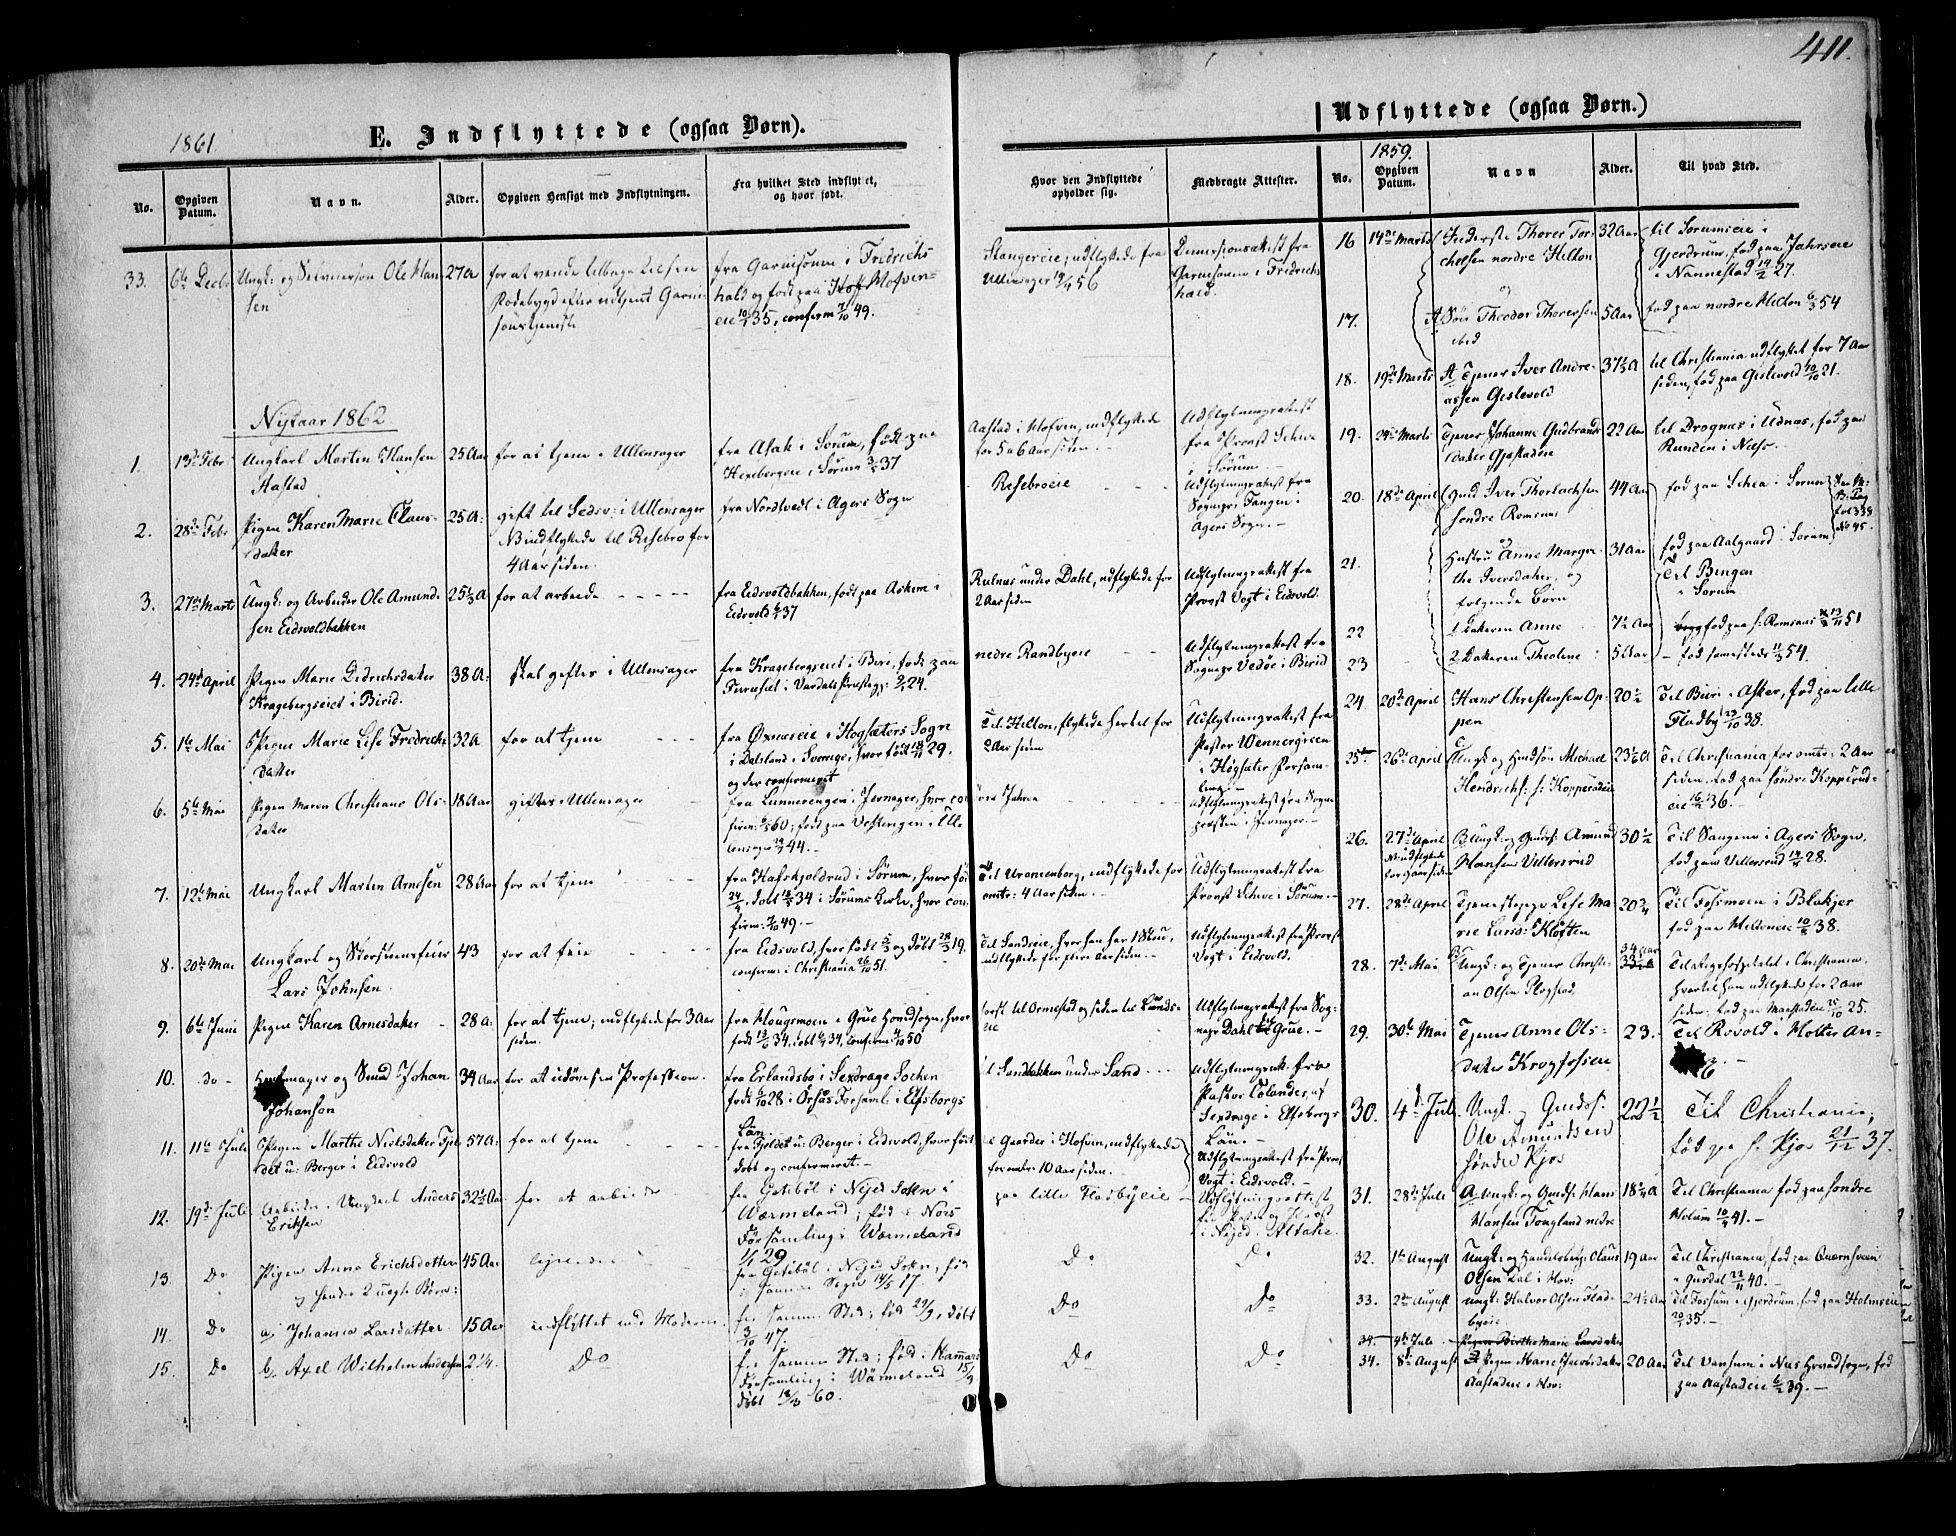 411.
1861
E. Indflyttede (ogsaa Børn).
No.
Opgiven Datum.
Navn.
Alder.
Opgiven Hensigt med Indflytningen.
Fra hvilket Sted indflyttet, og hvor født.
Hvor den Indflyttede opholder sig.
Medbragte Attester.
33.
6te Decbr
Ungk: og Selveiersøn Ole Han-
sen
27 A
for at vende tilbage til sin
fra Garnisonen i Fredrichs
hald og født paa Hofven-
eie 10/4 35, confirm 7/10 49.
Ullensager 19/4 56
Dimissionsattest fra
Garnisonen i Fredrich
hald.
Nytaar 1862.
1.
13de Febr
Ungkarl Morten Hansen
Aastad
25 Aar
for at tjene i Ullensager
fra Asak i Sørum, født paa
Hexebergeie i Sørum 3/5 37
Aastad i Hofven, indflyttede
for 5 a 6 Aar siden.
Udflytningsattest
fra Provst Schive
i Sørum.
2.
28de Febr
Pigen Karen Marie Claus-
datter
25 A:
gift til Sædsv: i Ullensager
NB indflyttede til Risebro for
4 Aar siden.
fra Nordtvedt i Agers Sogn
Risebroeie
Udflytningsattest fra
Sognepr: Tangen i
Agers Sogn.
3.
27de Marts
Ungk: og Arbeider Ole Amund-
sen Eidsvoldbakken
25 1/3 A
for at arbeide
fra Eidsvoldbakken, født paa Askim i
Eidsvold 6/4 37
Rulnæs under Dahl, indflyttede for
2 Aar siden
Udflytningsattest fra
Provst Vogt i Eidsvold.
4.
24de April
Pigen Marie Didrichsdatter
Kragebergseiet i Birid.
38 A:
skal giftes i Ullensager
fra Kragebergseiet i Biri, født paa
Furuset i Vardals Præstegj: 9/4 24.
nedre Randbyeie
Udflytningsattest fra
Sognepr Vedøe i Birid
5.
1te Mai
Pigen Marie Lise Fredrichs
datter
32 A
for at tjene
fra Øxnæseie i Høgsæters Sogne
i Dalsland i Sverige, hvor født 18/11 29.
og der confirmeret
Til Helton, flyttede hertil for
2 Aar siden
Udflytningsattest fra
Pastor Wennergreen
i Høgsæter Forsam-
ling.
6.
5te Mai
Pigen Maren Christiane Ols-
datter
18 Aar
giftes i Ullensager
fra Lunnerengen i Jevnager, hvor con
lensager 29/7 44.
øvre Jahren
Udflytningsattest fra Sogne
præsten i Jevnager.
7.
12te Mai
Ungkarl Martin Arnesen
28 Aar
for at tjene
fra Hafskjoldrud i Sørum, hvor født
24/4, døbt 18/5 34 i Sørums Kirke, hvor con
firm: 7/10 49.
Til Vranenborg, indflyttede for
omtr: 4 Aar siden.
Udflytningsattest fra
Provst Schive i Sørum.
8.
20de Mai
Ungkarl og Skorsteensfeier
Lars Johnsen
43
for at feie
fra Eidsvold, hvor født 5/3 og døbt 28/3 19.
confirm: i Christiania 26/10 51.
Til Sandeie, hvor han har 1 Stue,
indflyttede for flere Aar siden.
Udflytningsattest fra Provst
Vogt i Eidsvold.
9.
6te Juni
Pigen Karen Arnesdatter
28 A:
for at tjene; indflyttede for 3 Aar
siden.
fra Hougsmoen i Grue Hovedsogn, hvor
først til Ormestad og siden til Lunds-
eie
Udflytningsattest fra Sog-
nepr Dahl til Grue.
10.
do
Hjulmager og Smed Johan
Johanson
34 Aar
for at udøve sin Profession.
fra Erlandsbo i Sexdrage Socken
født 5/10 28 i Örsås Forsaml: i Elfsborgs
Län.
til Sandbakken under Sand
Udflytningsatt. fra
Pastor Colander, af
Sexdrage i Elfsborgs
Län.
11.
11te Juli
Pigen Marthe Nielsdatter Fjel-
det u: Berger i Eidsvold
57 A:
for at tjene
fra Fjeldet u: Berger i Eidsvold, hvor født
døbt og confirmeret.
til Gaarder i Hofvin, indflyttede
for omtr: 10 Aar siden.
Udflytningsattest fra Provst
Vogt i Eidsvold.
12.
19de Juli
Arbeider, Ungkarl Anders
Eriksen
32 1/2 Aar
for at arbeide
fra Getebøl i Nyed Sokn i
Wærmeland; fød i Nors
Forsamling i Wærmeland
1/1 29
paa lille Fladbyeie
Udflytningsattest
i Nyed. Altahr.
13.
Do
Pigen Anna Erichsdatter
og hendes 2 uægte Børn:
45 Aar
ligesaa
fra Getebøl i Nyed Sokn; fød
i samme Sogn 14/5 17
Do
Do
14.
Do
a, Johanna Larsdatter
15 Aar
indflyttet med Moderen.
fra samme Sted; fød 29/9, døbt
3/10 47.
Do
Do
15.
Do
b, Axel Wilhelm Andersen
2 1/4
Do
fra samme Sted; fød i Hammars
Forsamling i Wärmeland 15/3
døbt 18/3 60.
Do
Do
Udflyttede (ogsaa Børn.)
1859.
No.
Opgiven Datum.
Navn
Alder.
Til hvad Sted.
16
14de Marts
Inderste Thorer Tor-
chelsen nordre Helton
og
32 Aar
til Sørumseie i
Gjerdrum, fød paa Jahrseie
i Nannestad 14/2 27.
17.
A Søn Theodor Thorersen
ibid
5 Aar
fød paa nordre Helton 6/3 54
18.
19de Marts
A Tjener Iver Andre-
assen Gislevold
37 1/2 A
til Christiania udflyttet for 7 Aar
siden, fød paa Gislevold 10/10 21.
19.
Marts
Tjener Johanne Gudbrands
datter Gjestadeie
22 Aar
til Drognæs i Udnæs, fød paa
Runden i Næs.
20.
18de April
Gmd Iver Thorlachsen
søndre Romsaas
44 Aar
fød paa Schea i Sørum
No 45.
21.
og
Hustru Anne Margre-
the Iversdatter, og
følgende Børn
31 Aar
fød paa Aalgaard i Sørum
Til Bingen
i Sørum
22
1 Datteren Anne
7 1/2 Aar
fød paa s: Romsaas 51
23
2 Datteren Theoline
5 Aar
- fød sammesteds 11/3 54.
24
20de April
Hans Christensen Op-
pen
20 1/2
Til Bueri i Asker, fød paa lille
Fladby 23/10 38.
25
26de April
Ungk og Huusm Michael
Hendrichs: s: Kopperudeie
23 1/6 A
Til Christiania for omtr: 2 Aar
siden, fød paa søndre Kopperud-
eie 16/2 36.
26.
27de April
Ungk: og Gmds: Amund
Hansen Villersrud
30 1/2
Til Sangene i Agers Sogn,
fød paa Villersrud 14/9 28.
27.
28de April
Tjenestepige Lise Ma-
rie Larsd: Kløften
20 3/4
Til Fossmoen i Blakjer
fød paa Melbineie 10/8 38.
28.
7de Mai
Ungk: og Tjener Christi-
an Olsen Plogstad,
34 Aar
Til Rigshospitalet i Christiania,
hvortil han udflyttede for 2 Aar
siden, fød paa 25/10 25.
29.
30te Mai
Tjener Anne Ols-
datter Krogfosseie
23.
Til Rovold i Holter An-
30.
4de Juli
Ungk. og Gmdss.
Ole Amundsen
søndre Kjos
22 1/2
Til Christiania;
fød paa s. Kjos 21/12 37.
31.
28de Juli
A Ungk: og Gmds: Hans
Hansen Tougland nedre
18 1/4 A
Til Christiania fød paa søndre
Holum 10/4 41.
32.
1te August
Ungk: og Handelsbetj: Olaus
Olsen Dal i Hov:
19 Aar
Til Christiania, fød paa Qvernhveen
i Hurdal 22/11 40.
33.
2de August
Ungk: Halvor Olsen Flad-
byeie
24 1/2 Aar
Til Fossum i Gjerdrum, fød paa Holmseie
20/2 35.
34.
4de Juli
Pigen Birthe Marie Larsdatter
34.
8de August
Pigen Marie Jacobsdatter
Aastadeie i Hov:
20 Aar
Til Vansum i Næs Hovedsogn, fød
paa Aastadeie 6/2 39.